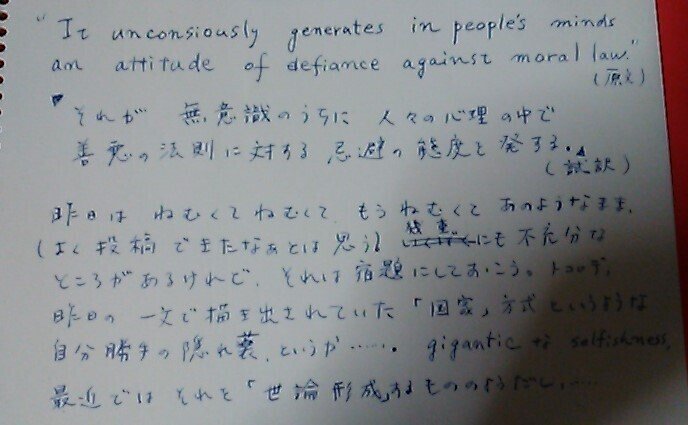 "It unconsiously generates in people's minds
an attitude of defiance against moral law."
(原文)
"それが 無意識のうちに 人々の心理の中で
善悪の法則に対する 忌避の態度を発する。
(試訳)
昨日は ねむくてねむくて、もうねむくて あのようなまま、
(よく投稿できたなぁとは思う) にも不充分な
ところがあるけれど、それは宿題にしておこう。トコロデ、
昨日の一文で描き出されていた「国家」方式というような
自分勝手の隠れ蓑、というか……. giganticな selfishness,
最近ではそれを「世論形成」するもののようだし、……